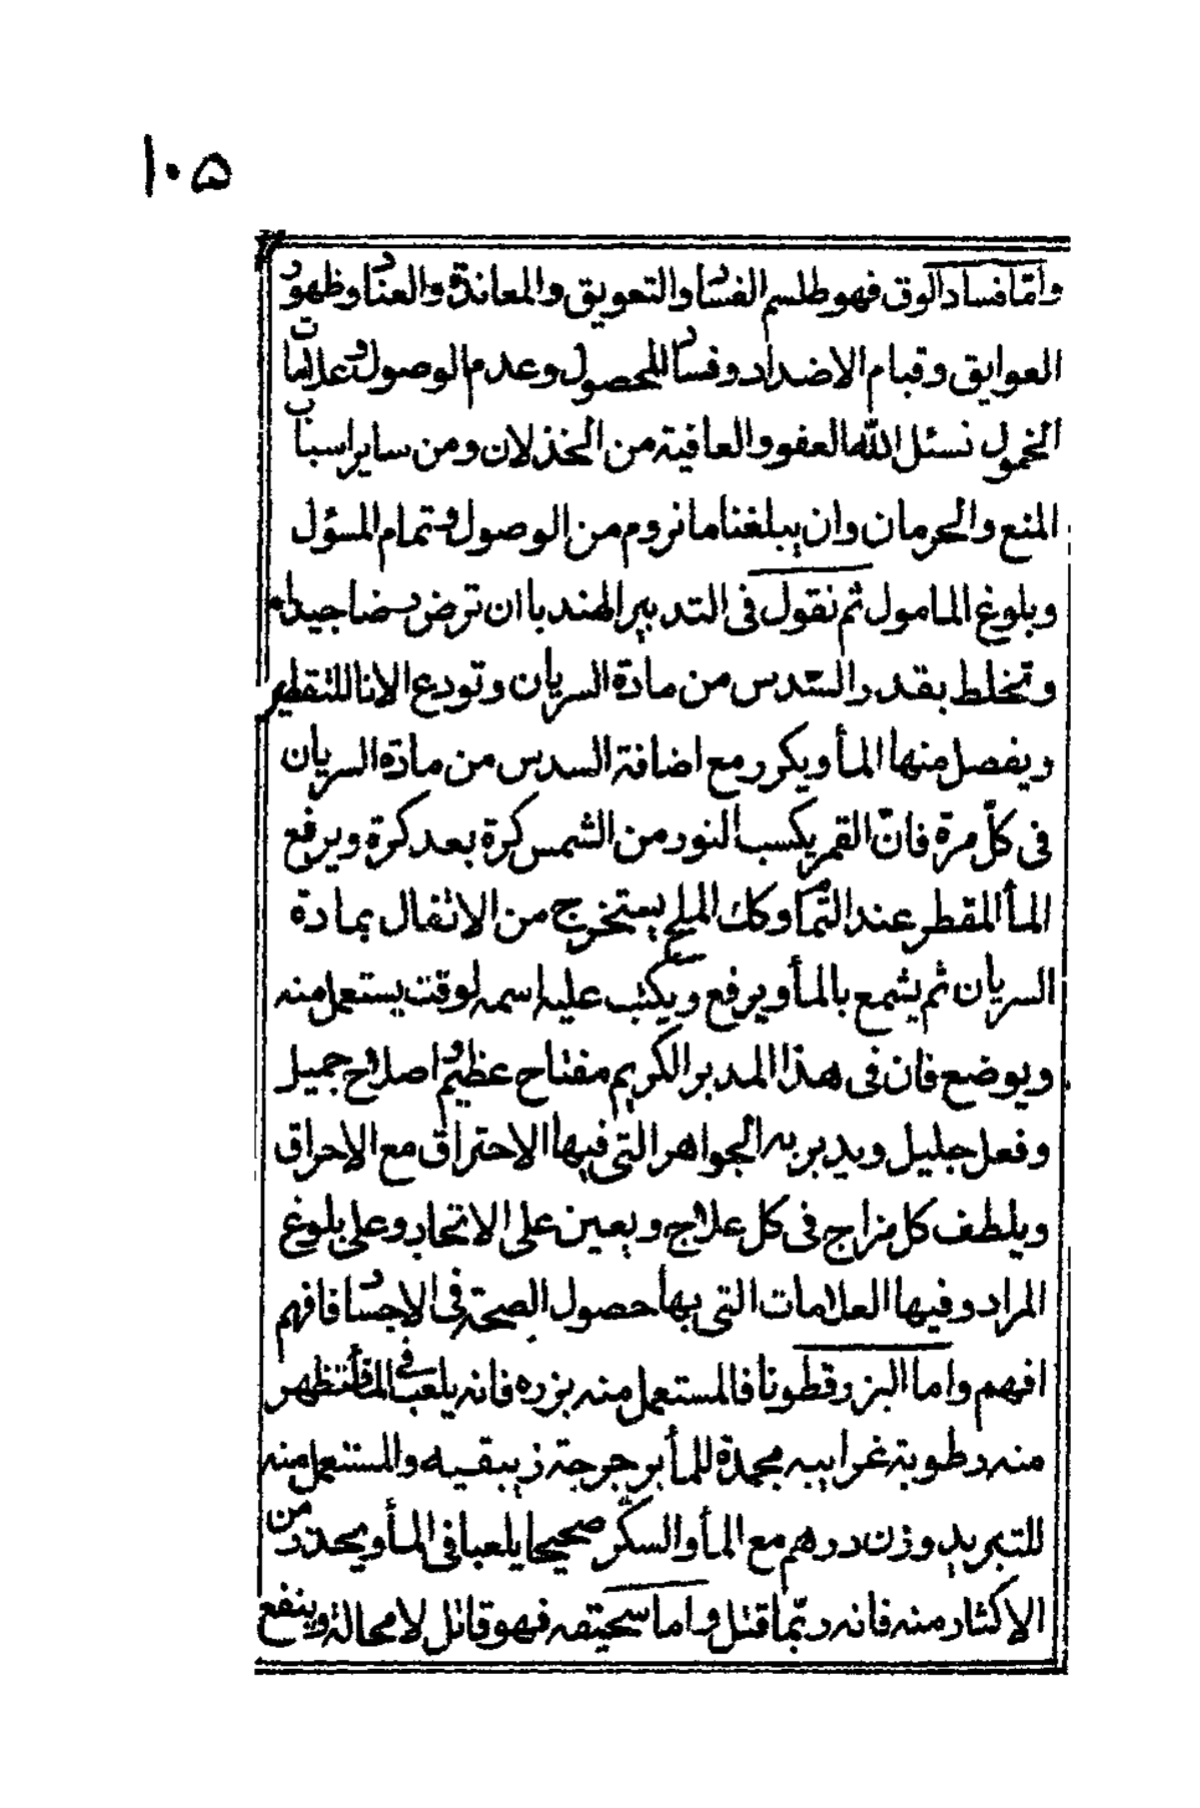 ١٠۵
وأمّا فساد الوق فهو طلسم الفساد والتعويق والمعاندة والعناد وظهور
العوايق وقيام الاضداد وفساد المحصول وعدم الوصول وعلامات
الخمول نسئل الله العفو والعافية من الخذلان ومن ساير اسباب
المنع والحرمان وان يبلغنا ما نروم من الوصول وتمام المسؤل
وبلوغ المامول ثم نقول فى التدبير الهند با ان ترض رضا جيدا
وتخلط بقدر السّدس من مادة السريان وتودع الانا للتقطير
ويفصل منها المأ ويكرر مع اضافة السدس من مادّة السريان
فى كلّ مرّة فانّ القمر يكسب النور من الشمس كرة بعد كرة ويرفع
المأ المقطر عند التمام وكك الملح يستخرج من الاثفال بمادة
السريان ثم يشمع بالمأ ويرفع ويكتب عليه اسمه لوقت يستعمل منه
ويوضع فان فى هذا المدبر الكريم مفتاح عظيم و اصلاح جميل
وفعل جليل ويدبر به الجواهر التى فيها الاحتراق مع الاحراق
ويلطف كل مزاج فى كل علاج ويعين على الاتحاد وعلى بلوغ
المراد وفيها العلامات التى بها حصول الصحة فى الاجساد فافهم
افهم واما البزرقطونا فالمستعمل منه بزره فانه يلعب فى المأ فتظهر
منه رطوبة غرابيه مجمدة للمأ برجرجة زيبقيه والمستعمل منه
للتبريد وزن درهم مع المأ والسكّر صحيحا يلعبا فى المأ ويحذر من
الاكثار منه فانه ربّما قتل واما سحيقه فهو قاتل لا محالة وينفع